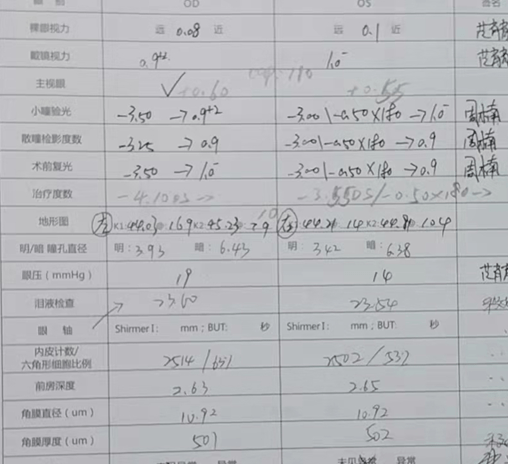 OD OS
裸眼视力 远 0.08 近 远 0.1 近
戴镜视力 0.9+2 1.0-
主视眼 ✓ +0.60 +0.55
小瞳验光 -3.50 → 0.9+2 -3.00/-0.50×180 → 1.0- 周楠
散瞳检影度数 -3.25 → 0.9 -3.00/-0.50×180 → 0.9 周楠
术前复光 -3.50 → 1.0- -3.00/-0.50×180 → 0.9 周楠
治疗度数 -4.10DS → -3.55DS/-0.50×180 →
地形图 K2: K2:
明/暗 瞳孔直径 明: 3.93 暗: 6.43 明: 3.42 暗: 6.38
眼压(mmHg) 19 14
泪液检查 23.60 23.54
眼 轴 ShirmerⅠ: mm;BUT: 秒 ShirmerⅠ: mm;BUT: 秒
内皮计数/ 2514/65% 2502/53%
六角形细胞比例
前房深度 2.63 2.65
角膜直径(um) 10.92 10.92
角膜厚度(um) 501 502
异常 未见 异常